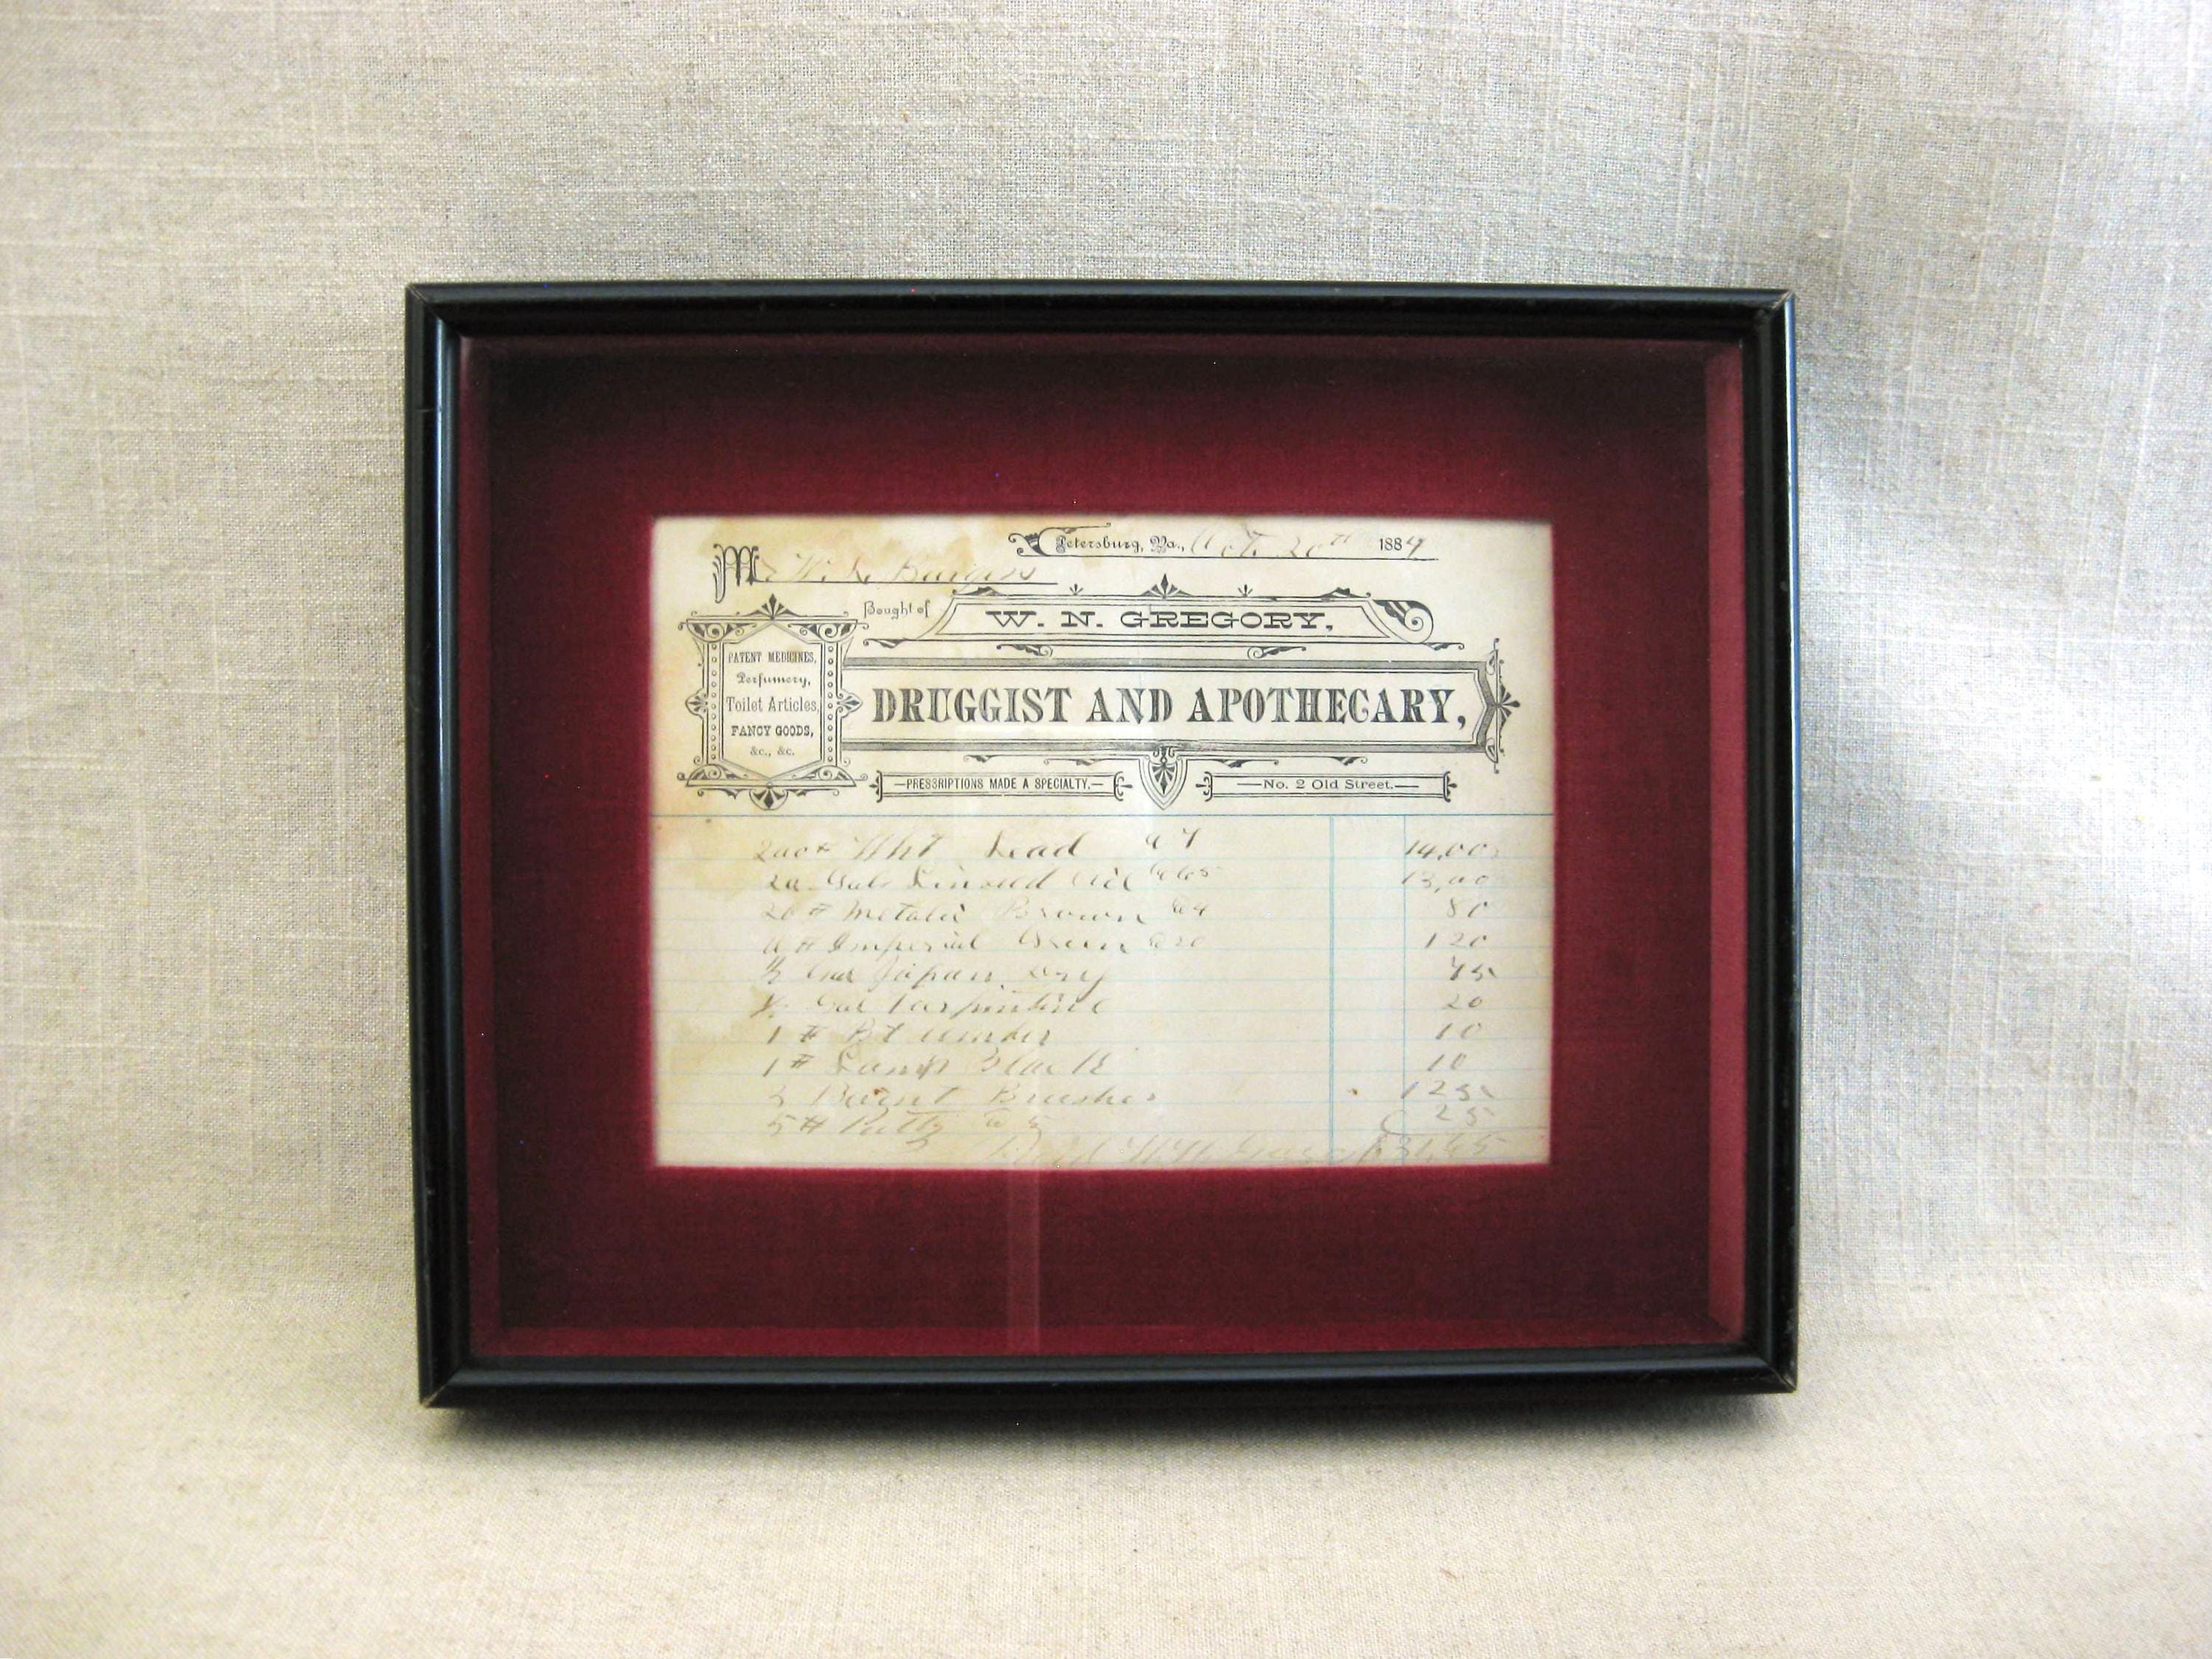 Petersburg, Va., Oct. 20th 1884
Mr W. L. Burgess
Bought of W. N. GREGORY,
DRUGGIST AND APOTHECARY,
PATENT MEDICINES,
Perfumery,
Toilet Articles,
FANCY GOODS,
&c., &c.
—PRESSRIPTIONS MADE A SPECIALTY.—
—No. 2 Old Street.—
200# Wht Lead @ 7 14,00
20 Gal Linseed Oil @ 65 13,00
20 # Metalic Brown @ 4 80
# Imperial Green @ 20 120
1/2 Japan Dry 75
Gal Turpintine 20
1 # Bt umber 10
1 # Lamp Black 10
3 Paint Brushes 125
5 # Putty @ 5 25
W. N. $31,65